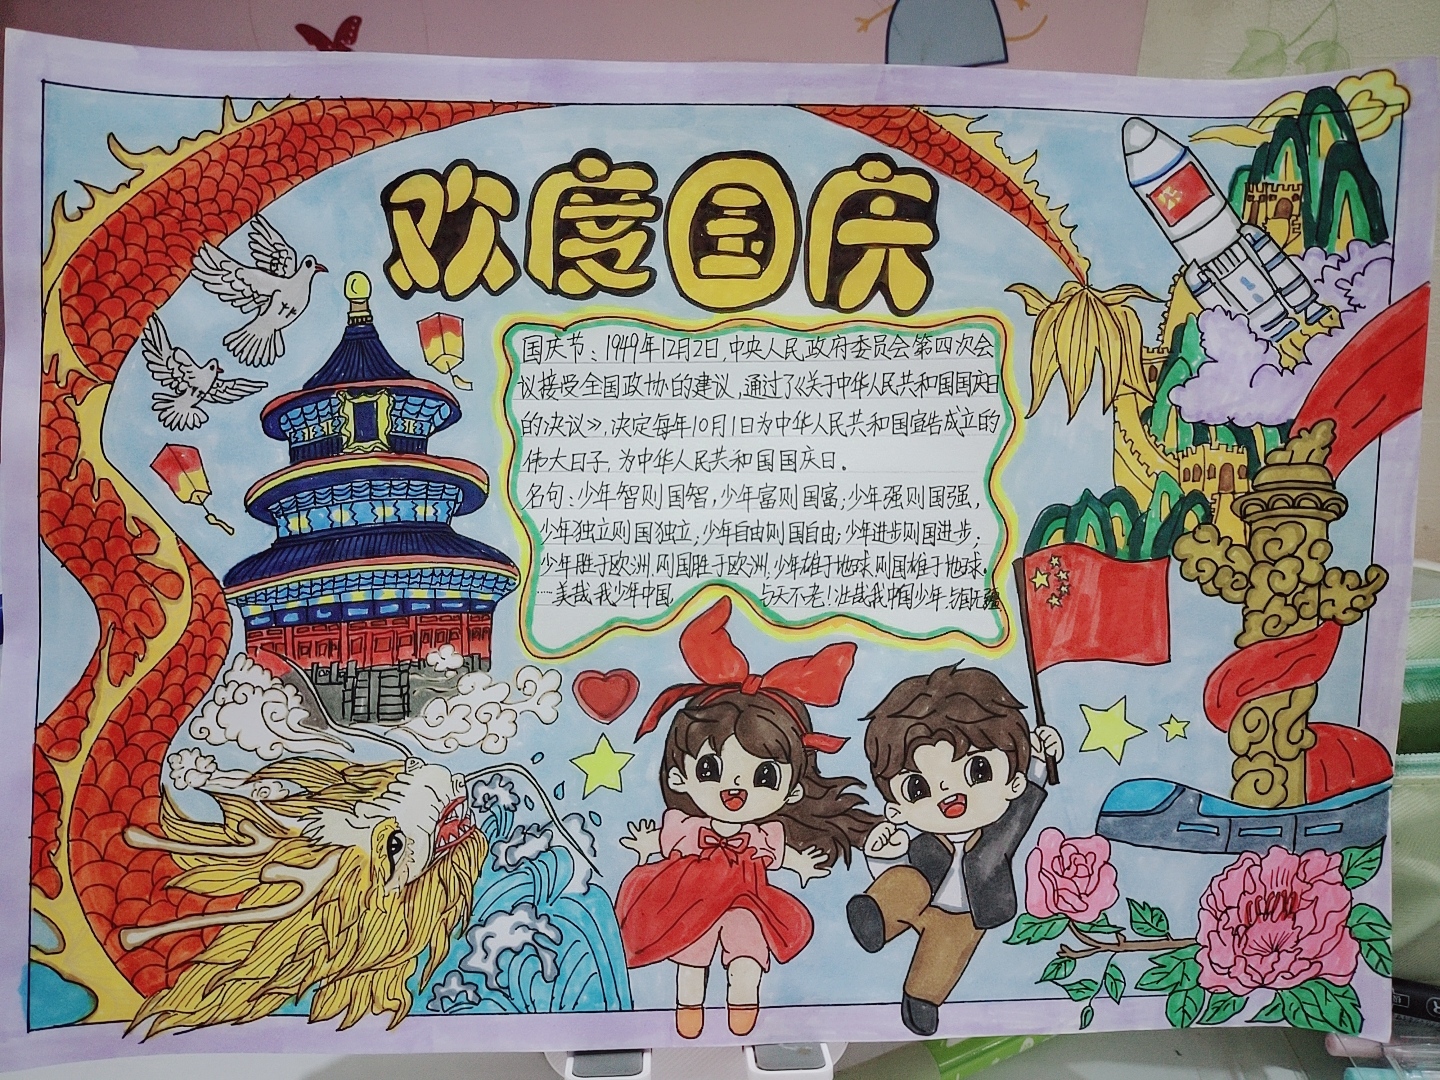 欢度国庆
国庆节：1949年12月2日,中央人民政府委员会第四次会
议接受全国政协的建议,通过了《关于中华人民共和国国庆日
的决议》,决定每年10月1日为中华人民共和国宣告成立的
伟大日子,为中华人民共和国国庆日。
名句:少年智则国智,少年富则国富;少年强则国强,
少年独立则国独立;少年自由则国自由;少年进步则国进步;
少年胜于欧洲,则国胜于欧洲;少年雄于地球,则国雄于地球.
……美哉我少年中国 与天不老!壮哉我中国少年,与国无疆